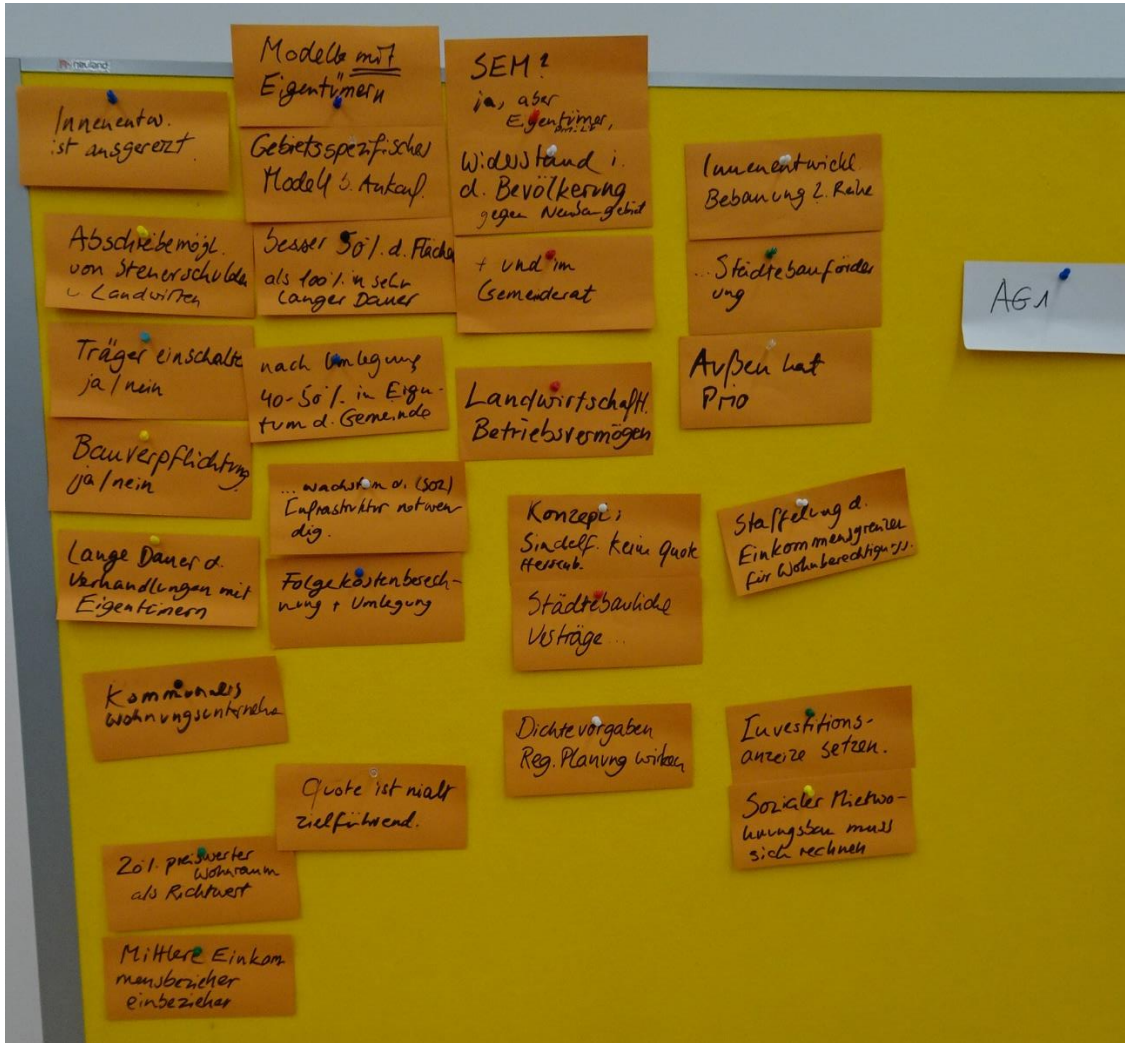 neuland
Innenentw.
ist ausgereizt.
Abschreibemögl.
von Steuerschulden
v Landwirten
Träger einschalte
ja/nein
Bauverpflichtung
ja/nein
Lange Dauer d.
Verhandlungen mit
Eigentümern
Kommunales
Wohnungsunterneh
20%. preiswerter
Wohnraum
als Richtwert
Mittlere Einkom
mensbezieher
einbeziehen
Modelle mit
Eigentümern
Gebietsspezifisches
Modell b. Ankauf.
besser 50%. d. Fläche
als 100%. in sehr
langer Dauer
nach Umlegung
40-50%. in Eigen-
tum d. Gemeinde
... wachstum d. (soz)
Infrastruktur notwen
dig.
Folgekostenberech-
nung + Umlegung
Quote ist nicht
zielführend.
SEM?
ja, aber
Eigentümer,
Widerstand i.
d. Bevölkerung
gegen Neubaugebiet
+ und im
Gemeiderat
Landwirtschaftl.
Betriebsvermögen
Konzept:
Sindelf. keine Quote
Herrenb.
Städtebauliche
Verträge...
Dichtevorgaben
Reg. Planung wirken
Innenentwickl.
Bebauung 2. Reihe
... Städtebauförder
ung
Außen hat
Prio
Staffelung d.
Einkommensgrenzen
für Wohnberechtigungss.
Investitions-
anreize setzen.
Sozialer Mietwo-
hnungsbau muss
sich rechnen
AG1